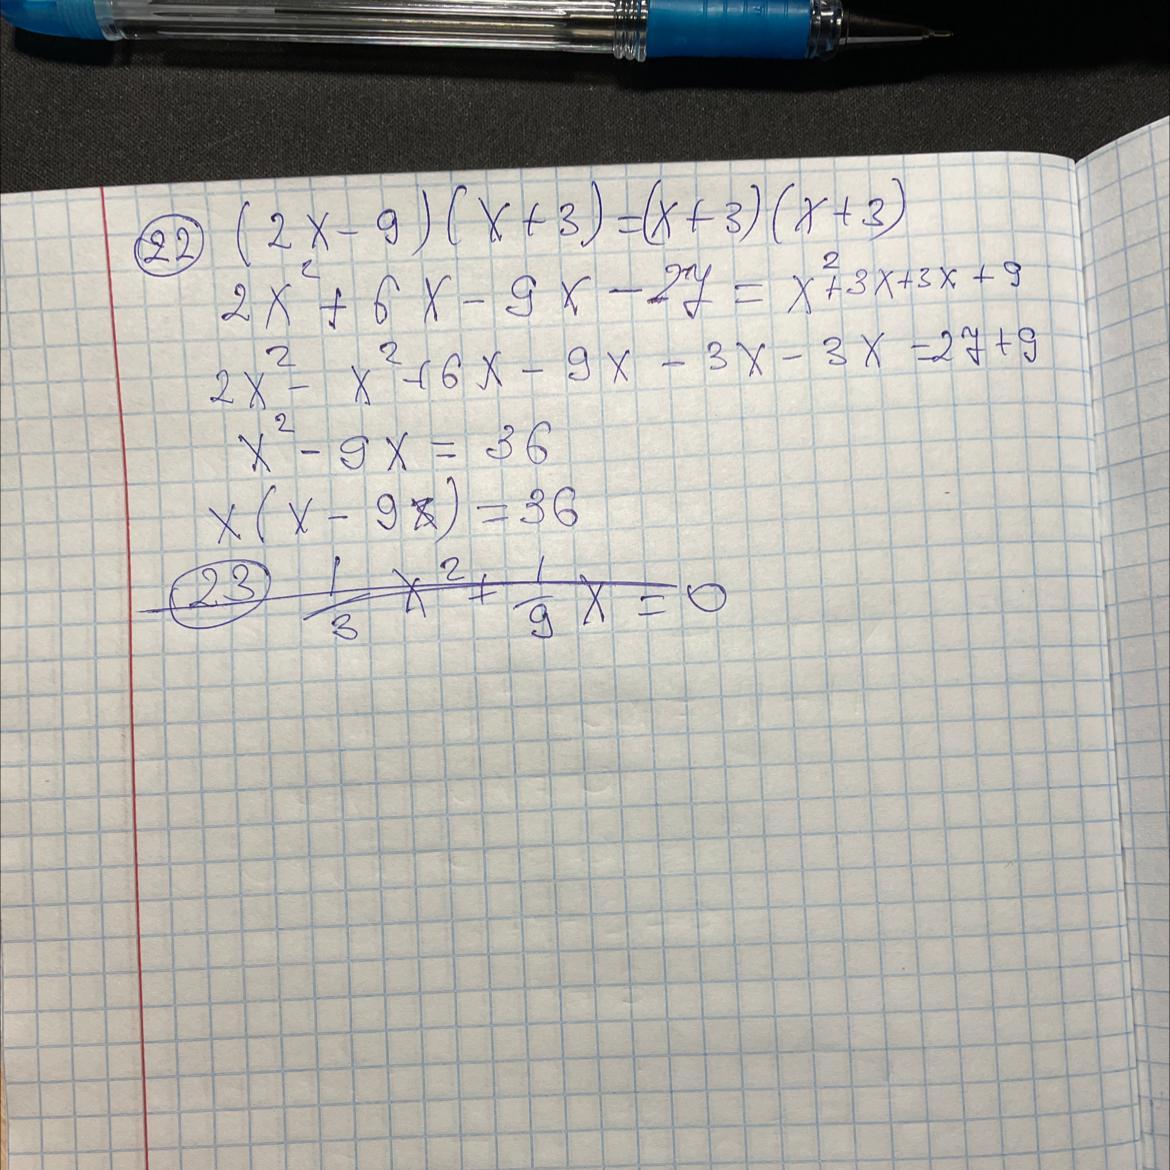 22 (2x-9)(x+3)=(x+3)(x+3)
2x²+6x-9x-27=x²+3x+3x+9
2x²-x²+6x-9x-3x-3x=27+9
x²-9x=36
x(x-9)=36
23 1/3 x²+1/9 x=0